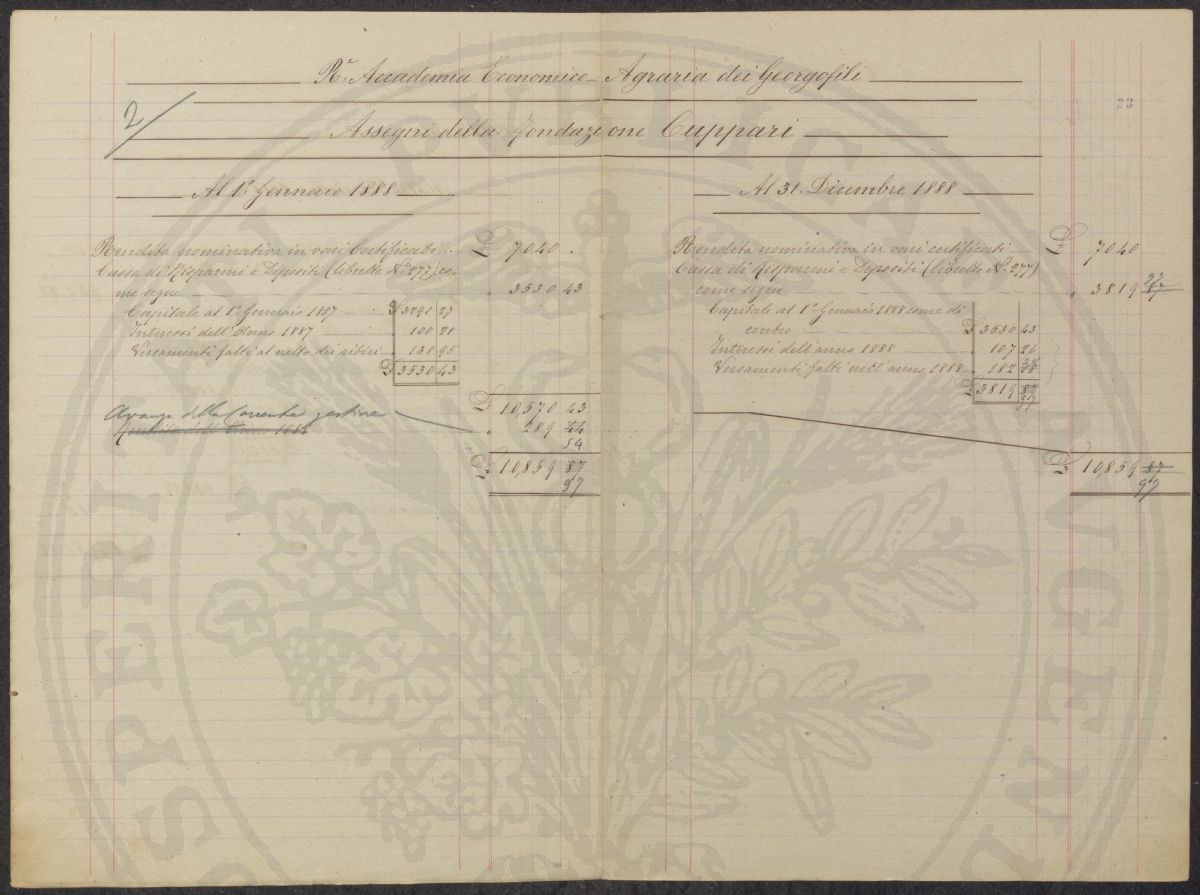 Rᵉ Accademia Economico-Agraria dei Georgofili
2
23
Assegni della Fondazione Cuppari
Al 1º Gennaio 1888
Rendita nominativa in vari Certificati £ 7040 .
Cassa di Risparmi e Depositi (libretto Nº 277) co-
me segue . 3530 43
Capitale al 1º Gennaio 1887 £ 3291 27
Interessi dell'Anno 1887 100 21
Versamenti fatti al netto dei ritiri 138 95
£ 3530 43
£ 10,570 43
Avanzo della Corrente gestione
Rendita dell'Anno 1888 . 289 44
54
£ 10,859 87
97
Al 31. Dicembre 1888
Rendita nominativa in vari certificati £ 7040
Cassa di Risparmi e Depositi (libretto Nº 277)
come segue . 3819 87
97
Capitale al 1º Gennaio 1888 come di
contro £ 3530 43
Interessi dell'anno 1888 . 107 26
Versamenti fatti nell'anno 1888 . 182
£ 3819 87
97
£ 10,859 87
97
PUBLICAE
PROSPERITATI AUGENDAE